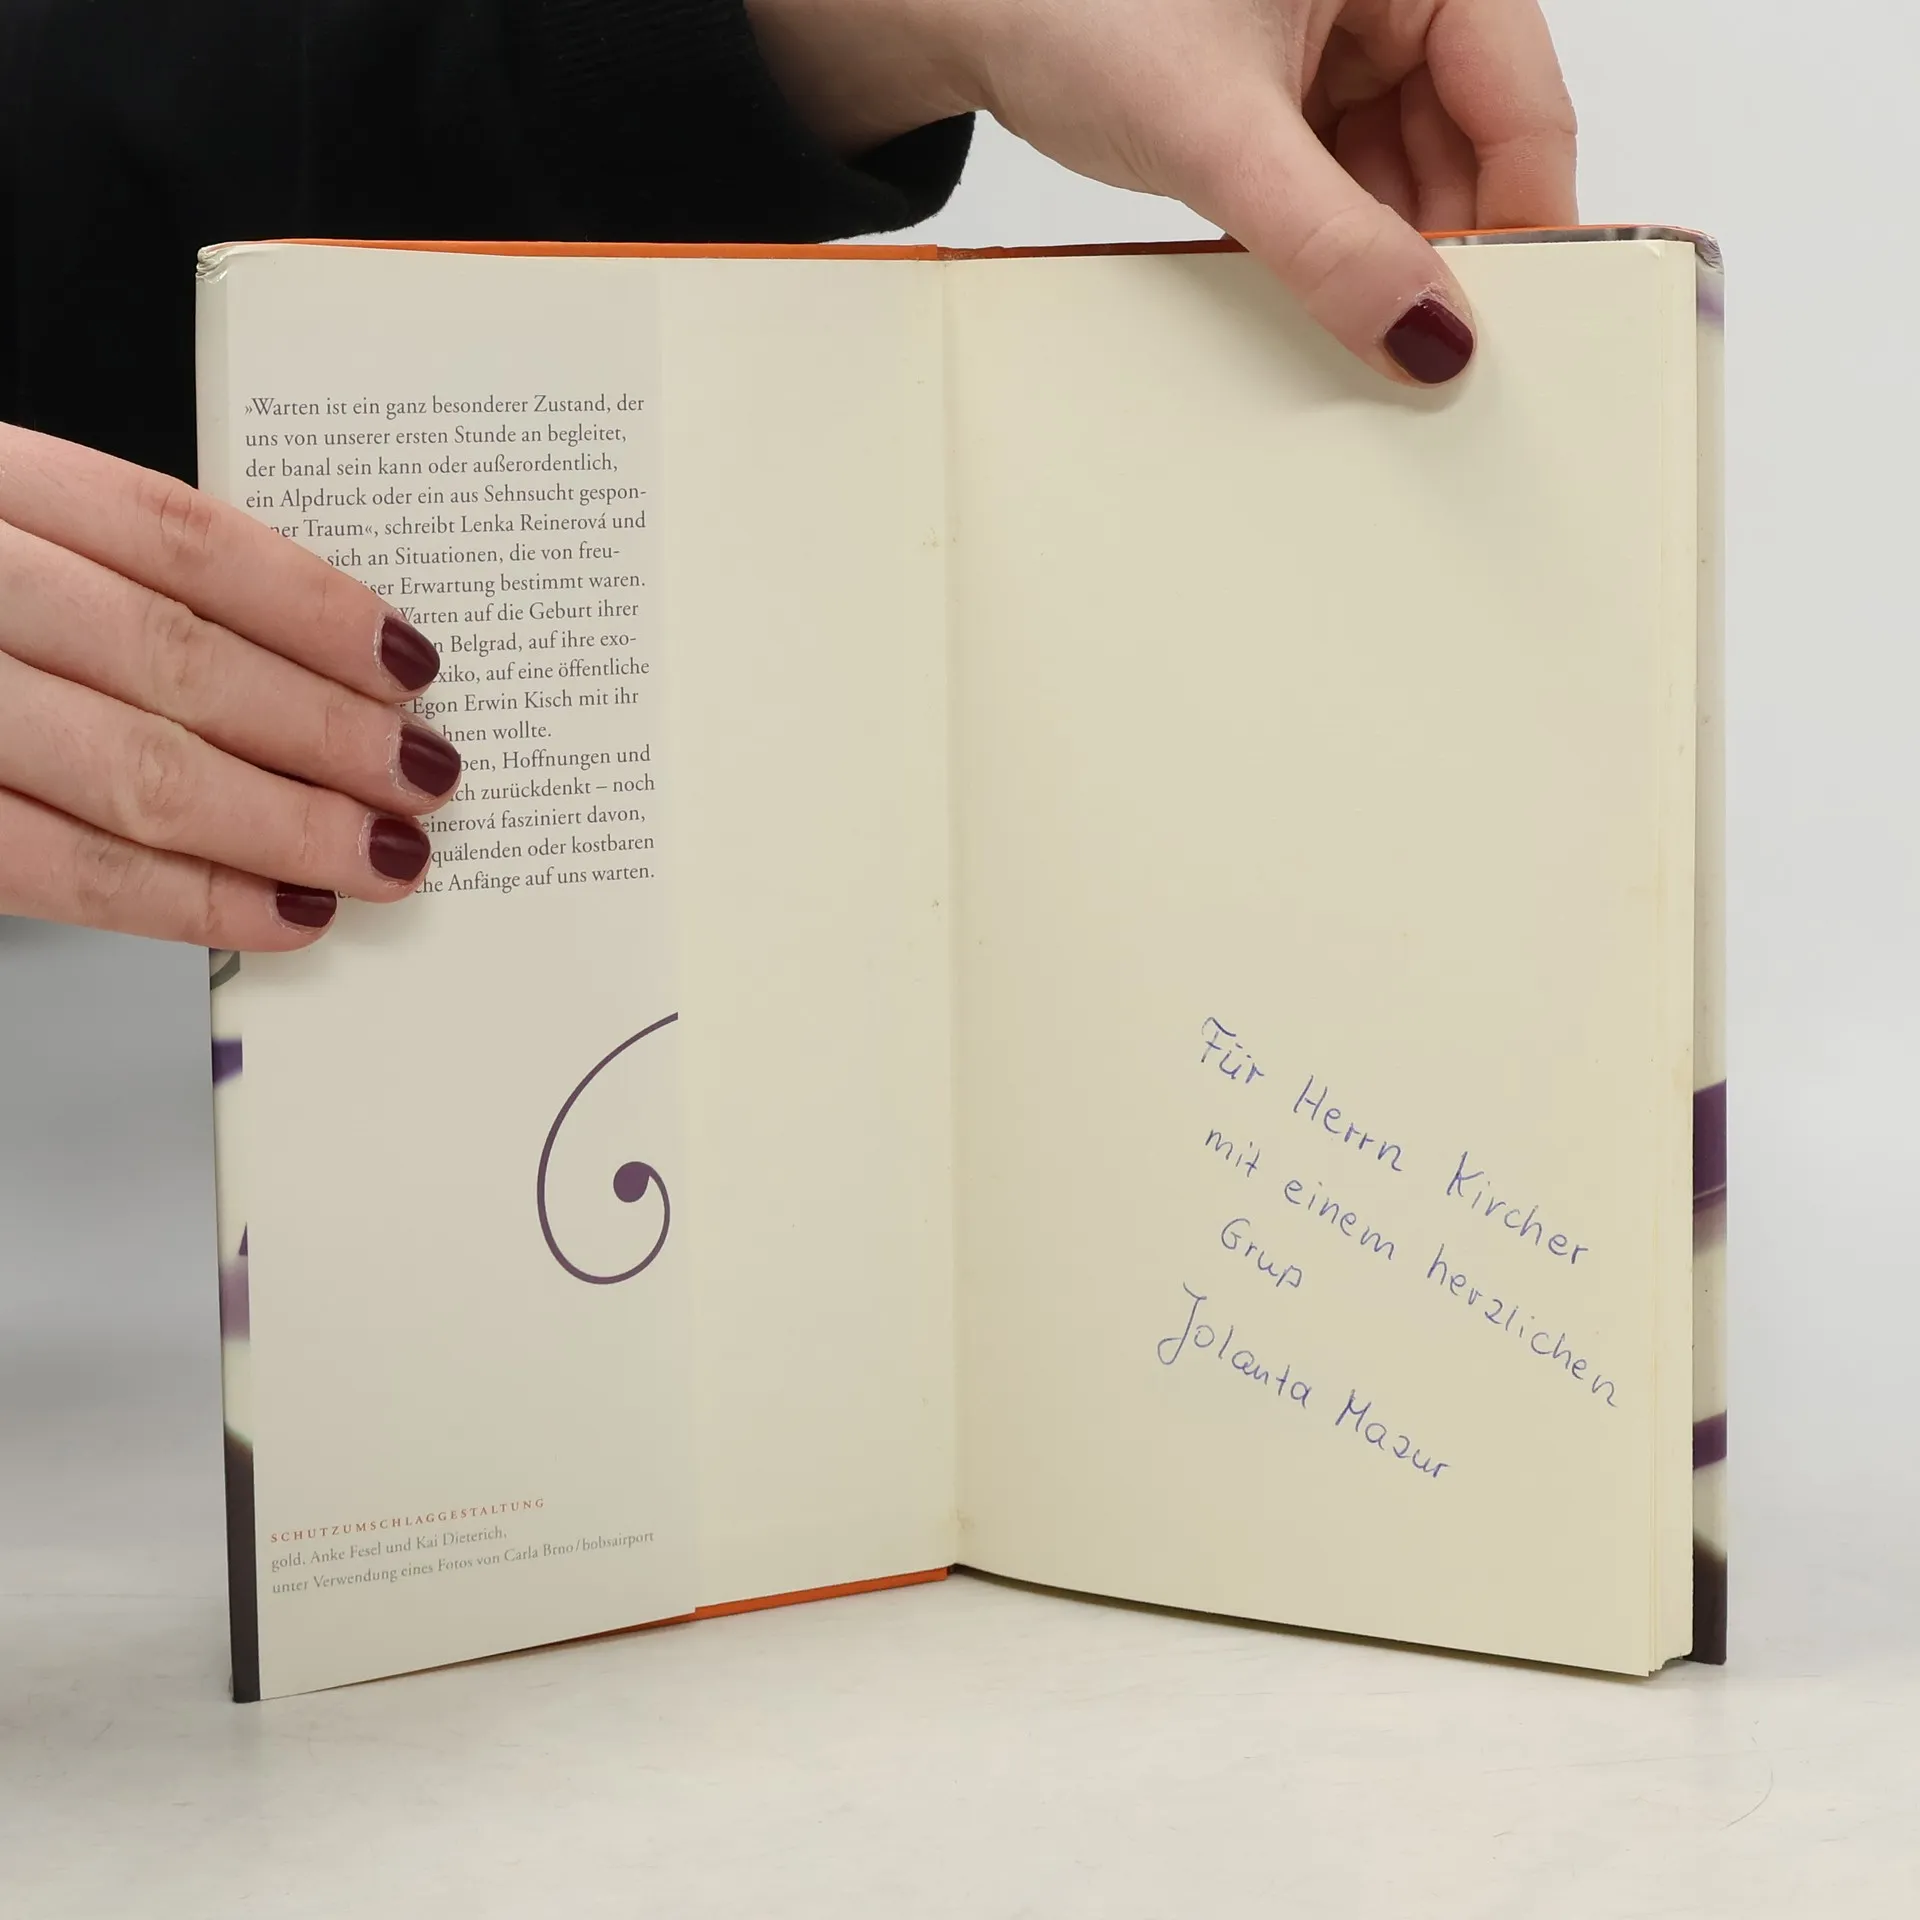 »Warten ist ein ganz besonderer Zustand, der
uns von unserer ersten Stunde an begleitet,
der banal sein kann oder außerordentlich,
ein Alpdruck oder ein aus Sehnsucht gespon-
Traum«, schreibt Lenka Reinerová und
sich an Situationen, die von freu-
Erwartung bestimmt waren.
Warten auf die Geburt ihrer
Belgrad, auf ihre exo-
auf eine öffentliche
Egon Erwin Kisch mit ihr
wollte.
Hoffnungen und
zurückdenkt – noch
fasziniert davon,
quälenden oder kostbaren
Anfänge auf uns warten.
SCHUTZUMSCHLAGGESTALTUNG
gold, Anke Fesel und Kai Dieterich,
unter Verwendung eines Fotos von Carla Brno/bobsairport
Für Herrn Kircher
mit einem herzlichen
Gruß
Jolanta Mazur